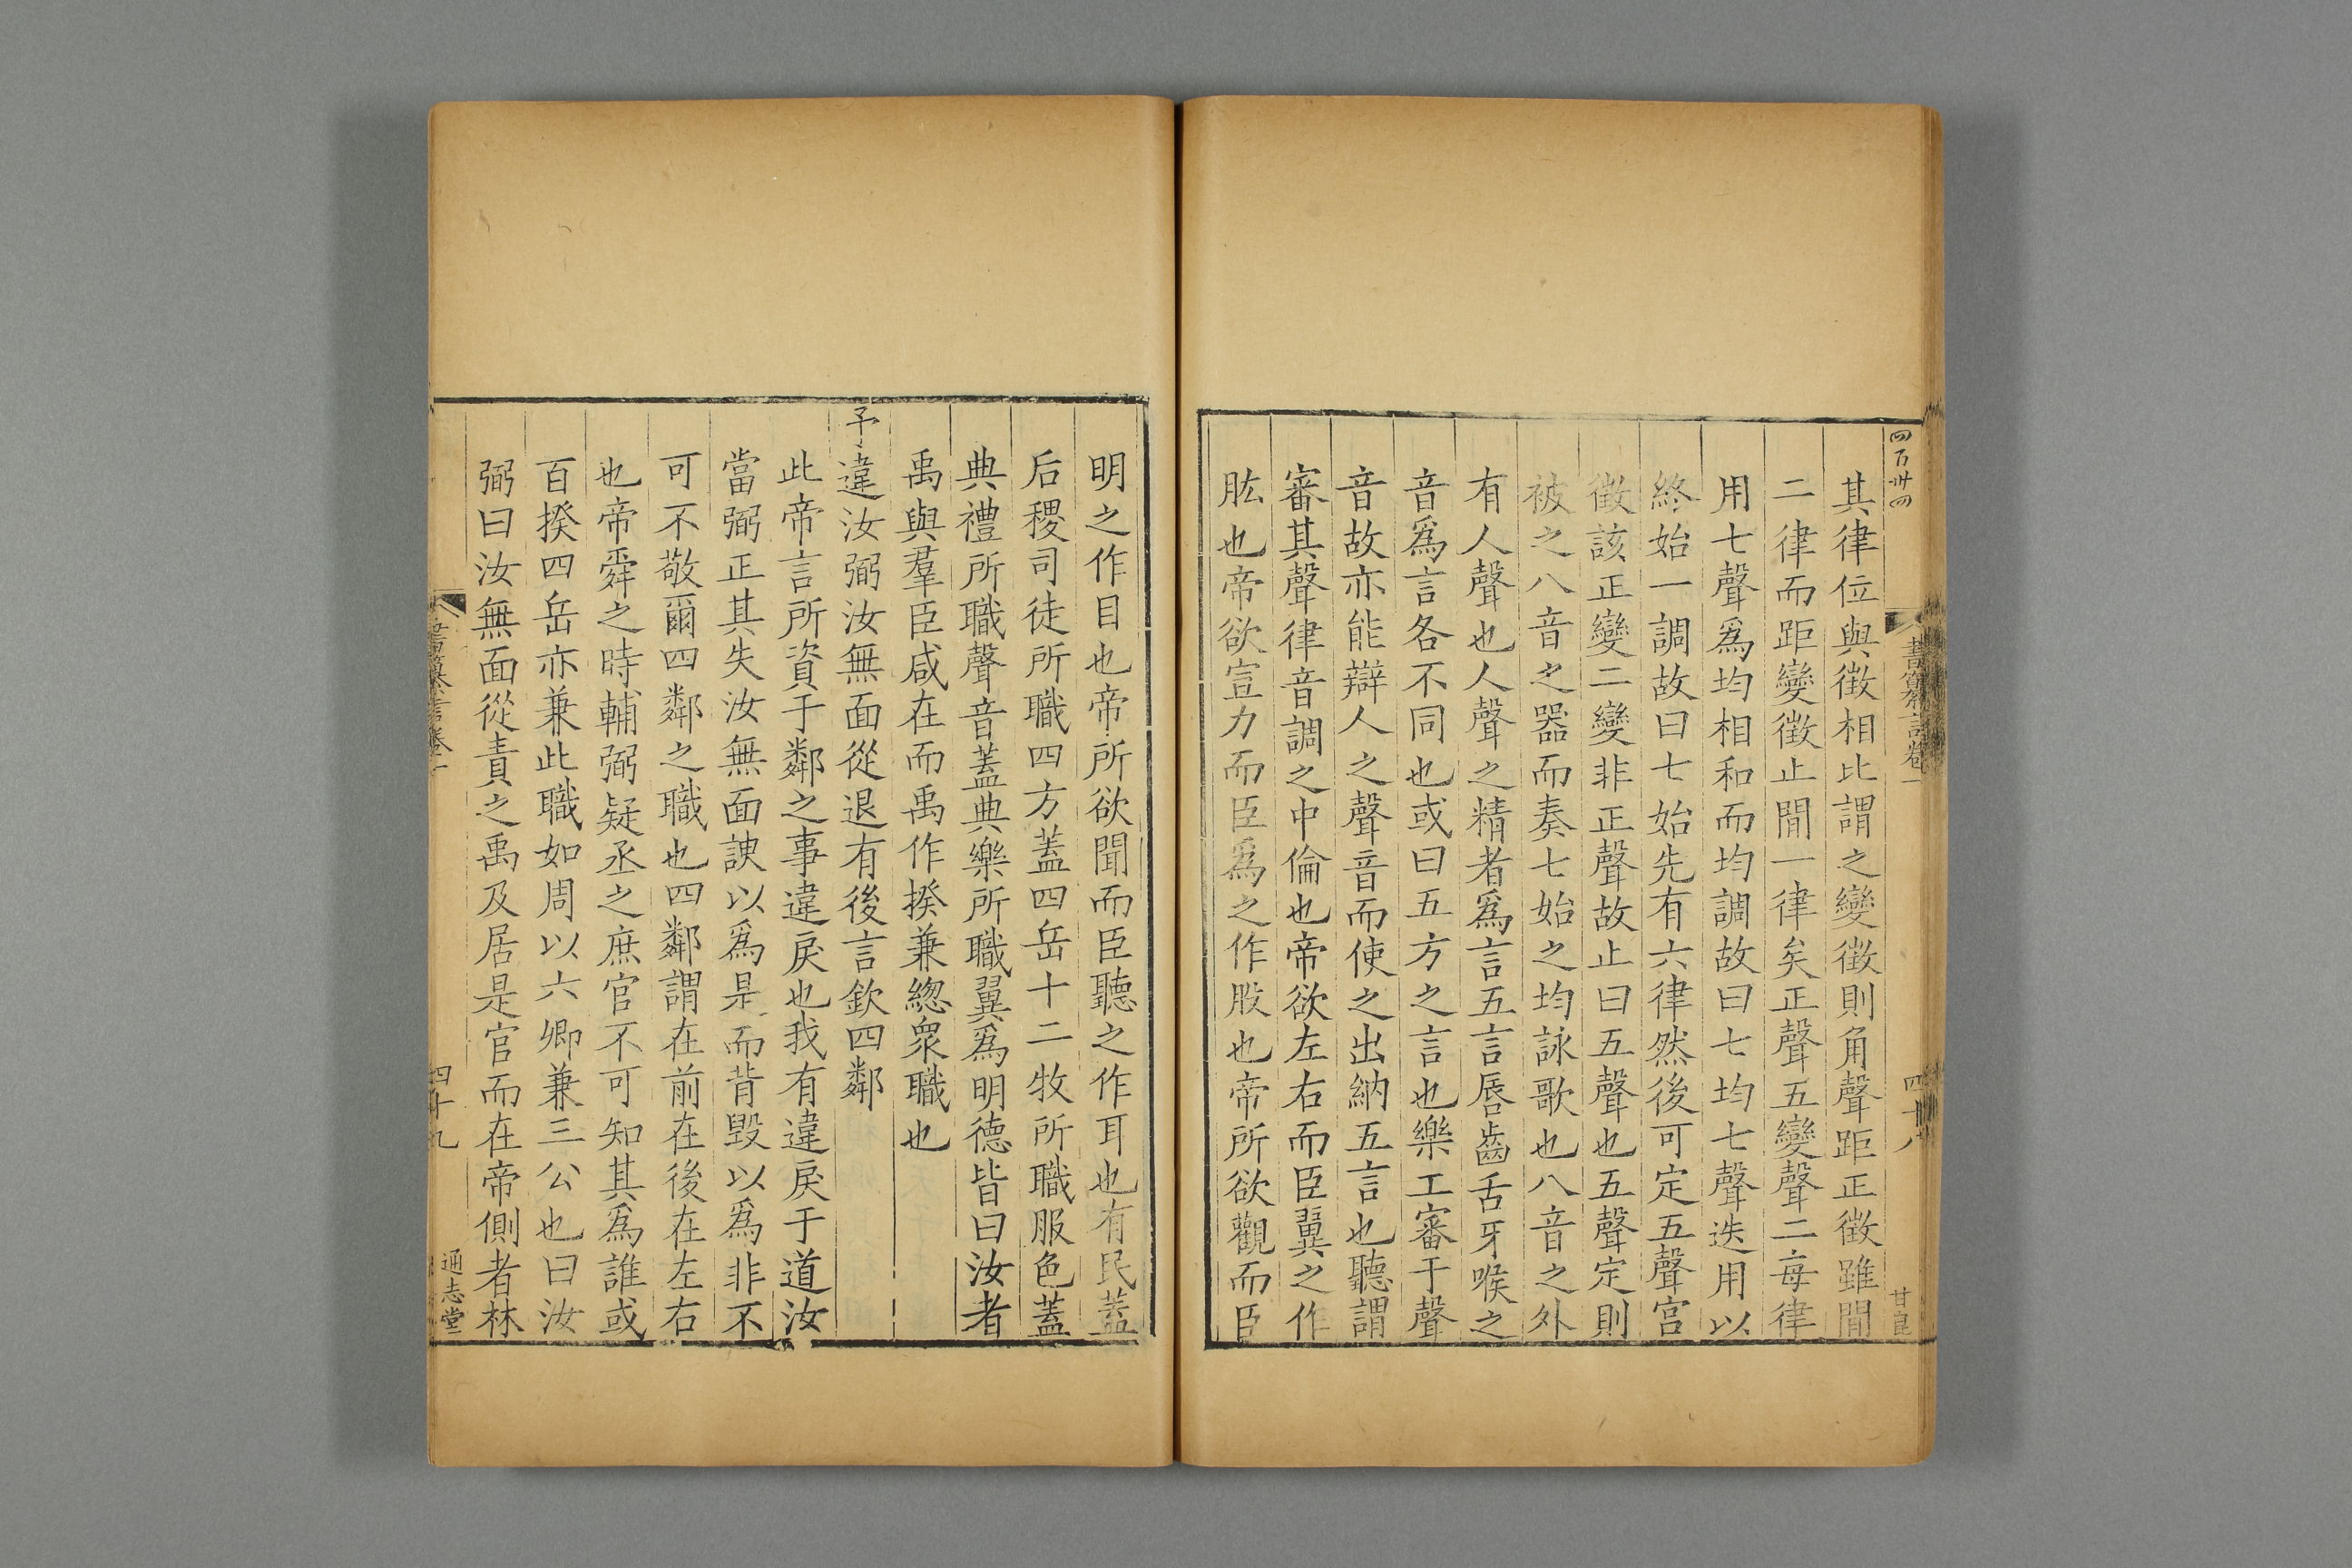 四百卅四
書纂言卷一
四十八
甘良
其律位與徵相比謂之變徵則角聲距正徵雖間
二律而距變徵止間一律矣正聲五變聲二每律
用七聲爲均相和而均調故曰七均七聲迭用以
終始一調故曰七始先有六律然後可定五聲宮
徵該正變二變非正聲故止曰五聲也五聲定則
被之八音之器而奏七始之均詠歌也八音之外
有人聲也人聲之精者爲言五言唇齒舌牙喉之
音爲言各不同也或曰五方之言也樂工審于聲
音故亦能辯人之聲音而使之出納五言也聽謂
審其聲律音調之中倫也帝欲左右而臣翼之作
肱也帝欲宣力而臣爲之作股也帝所欲觀而臣
明之作目也帝所欲聞而臣聽之作耳也有民蓋
后稷司徒所職四方蓋四岳十二牧所職服色蓋
典禮所職聲音蓋典樂所職翼爲明德皆曰汝者
禹與羣臣咸在而禹作揆兼總衆職也
予違汝弼汝無面從退有後言欽四鄰
此帝言所資于鄰之事違戾也我有違戾于道汝
當弼正其失汝無面諛以爲是而背毀以爲非不
可不敬爾四鄰之職也四鄰謂在前在後在左右
也帝舜之時輔弼疑丞之庶官不可知其爲誰或
百揆四岳亦兼此職如周以六卿兼三公也曰汝
弼曰汝無面從責之禹及居是官而在帝側者林
書纂言卷一
四十九
通志堂